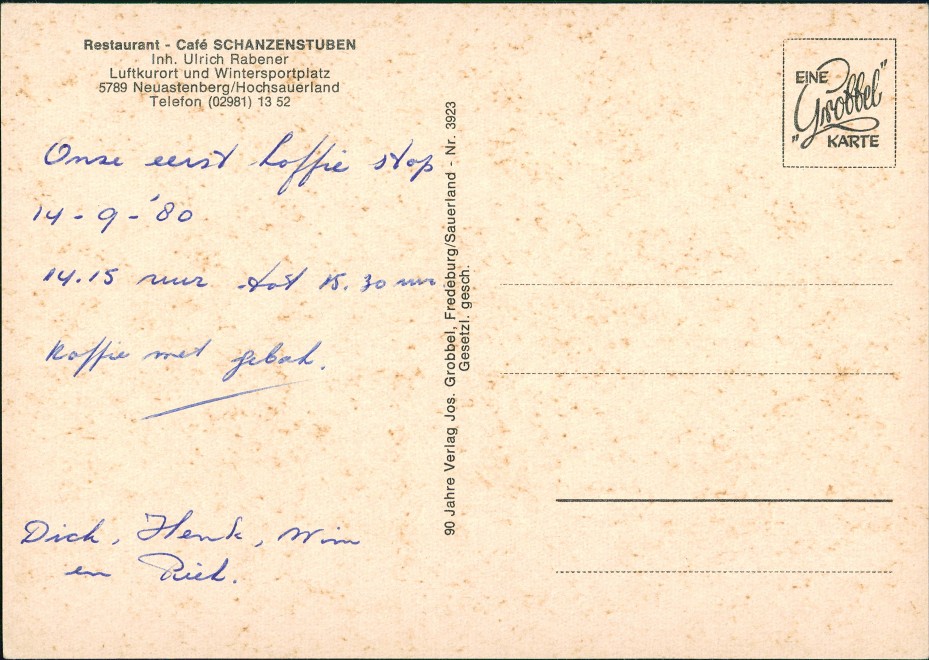 Restaurant - Café SCHANZENSTUBEN
Inh. Ulrich Rabener
Luftkurort und Wintersportplatz
5789 Neuastenberg/Hochsauerland
Telefon (02981) 13 52
Onze eerst koffie stop
14-9-'80
14.15 uur tot 15.30 uur
Koffie met gebak.
Dick, Henk, Wim
en Piet.
90 Jahre Verlag Jos. Grobbel, Fredeburg/Sauerland - Nr. 3923
Gesetzl. gesch.
EINE
„Grobbel"
KARTE